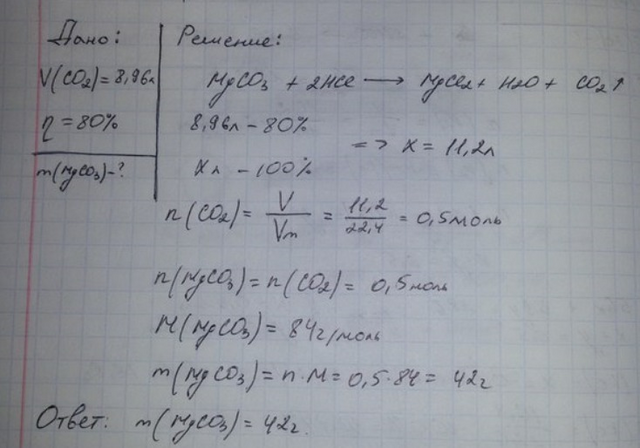 Дано:
V(CO₂)=8,96л
η=80%
m(MgCO₃)-?
Решение:
MgCO₃ + 2HCl ⟶ MgCl₂ + H₂O + CO₂↑
8,96л – 80%
Xл – 100%
=> X = 11,2л
n(CO₂) = V/Vm = 11,2/22,4 = 0,5моль
n(MgCO₃) = n(CO₂) = 0,5моль
M(MgCO₃) = 84г/моль
m(MgCO₃) = n·M = 0,5·84 = 42г
Ответ: m(MgCO₃) = 42г.